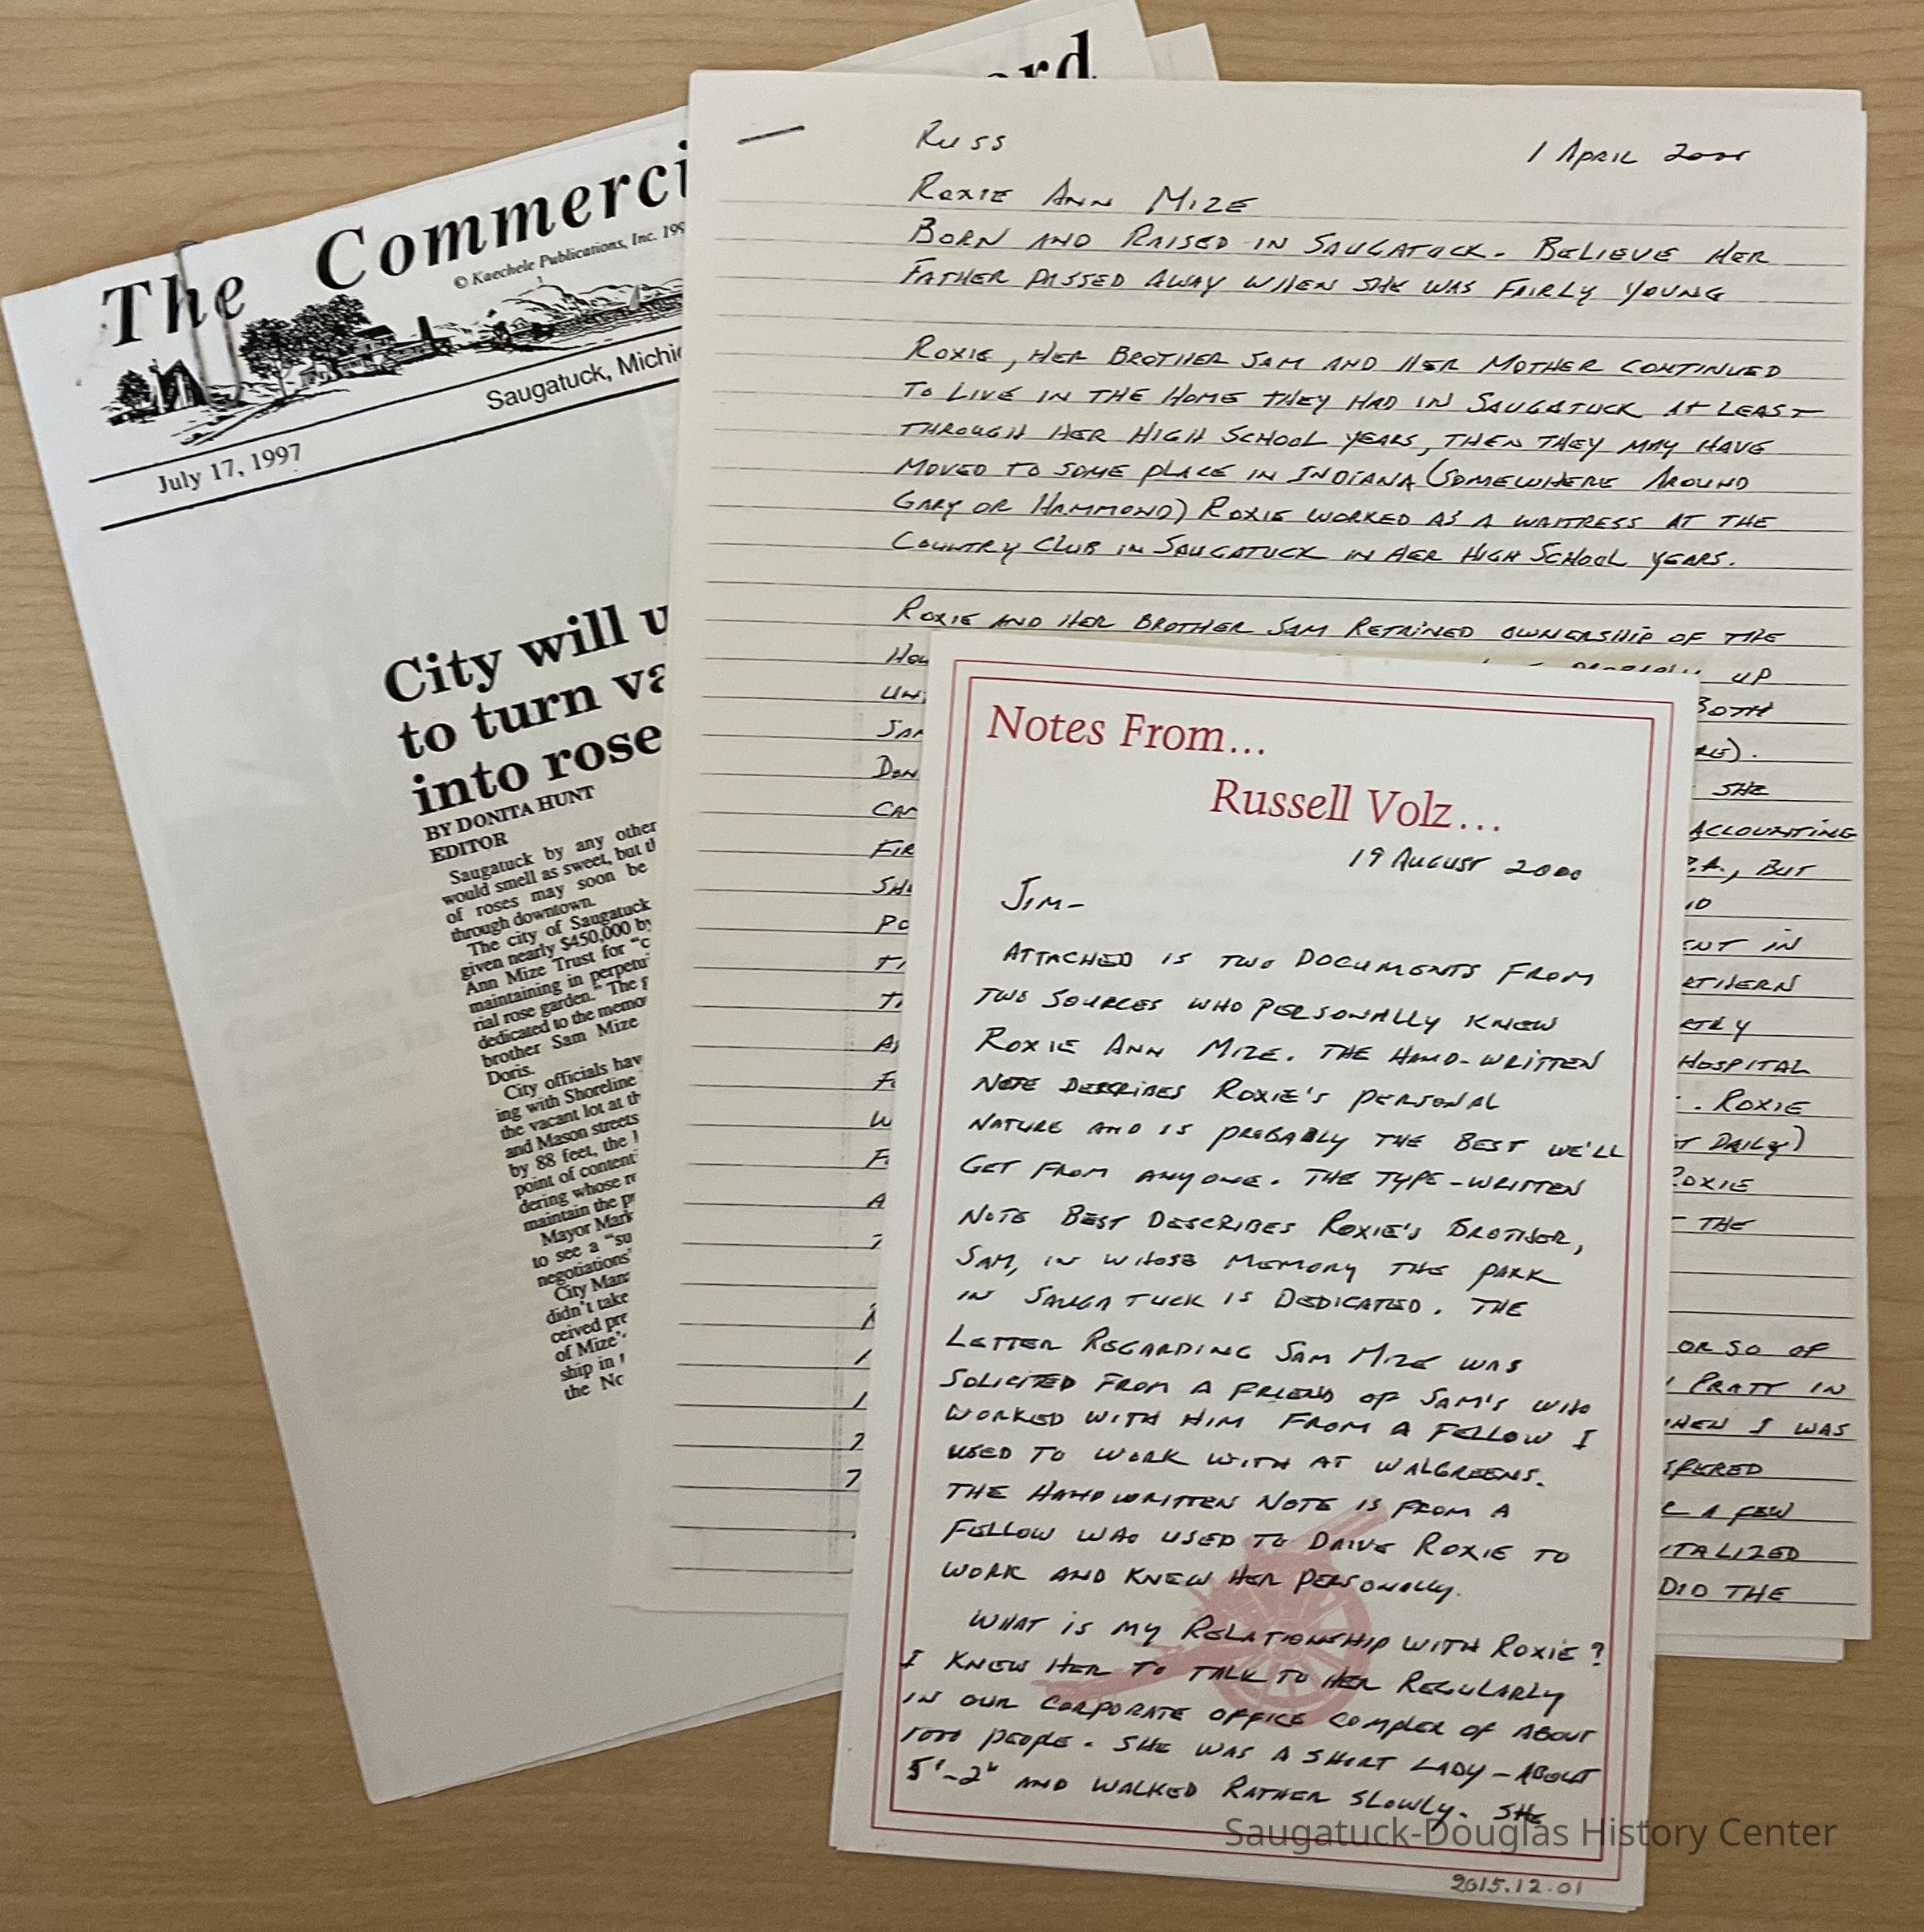 The Commerci
ord
© Kaechele Publications, Inc. 199
Saugatuck, Michi
July 17, 1997
City will u
to turn va
into rose
BY DONITA HUNT
EDITOR
Saugatuck by any other
would smell as sweet, but th
of roses may soon be
through downtown.
The city of Saugatuck
given nearly $450,000 by
Ann Mize Trust for “c
maintaining in perpetu
rial rose garden.” The g
dedicated to the memo
brother Sam Mize
Doris.
City officials hav
ing with Shoreline
the vacant lot at th
and Mason streets
by 88 feet, the l
point of content
dering whose re
maintain the pr
Mayor Mark
to see a “su
negotiations”
City Mana
didn’t take
ceived pre
of Mize’
ship in
the No
RUSS
1 APRIL 2000
ROXIE ANN MIZE
BORN AND RAISED IN SAUGATUCK. BELIEVE HER
FATHER PASSED AWAY WHEN SHE WAS FAIRLY YOUNG
ROXIE, HER BROTHER SAM AND HER MOTHER CONTINUED
TO LIVE IN THE HOME THEY HAD IN SAUGATUCK AT LEAST
THROUGH HER HIGH SCHOOL YEARS, THEN THEY MAY HAVE
MOVED TO SOME PLACE IN INDIANA (SOMEWHERE AROUND
GARY OR HAMMOND) ROXIE WORKED AS A WAITRESS AT THE
COUNTRY CLUB IN SAUGATUCK IN HER HIGH SCHOOL YEARS.
ROXIE AND HER BROTHER SAM RETAINED OWNERSHIP OF THE
HOU UP
UN BOTH
SAM RE).
DON SHE
CAR ACCOUNTING
FIR P.A., BUT
SHE ND
PO ENT IN
RTHERN
ETRY
HOSPITAL
. ROXIE
ST DAILY)
ROXIE
THE
OR SO OF
PRATT IN
WHEN I WAS
SFERED
A FEW
ITALIZED
DID THE
Notes From...
Russell Volz...
19 AUGUST 2000
JIM-
ATTACHED IS TWO DOCUMENTS FROM
TWO SOURCES WHO PERSONALLY KNEW
ROXIE ANN MIZE. THE HAND-WRITTEN
NOTE DESCRIBES ROXIE'S PERSONAL
NATURE AND IS PROBABLY THE BEST WE'LL
GET FROM ANYONE. THE TYPE-WRITTEN
NOTE BEST DESCRIBES ROXIE'S BROTHER,
SAM, IN WHOSE MEMORY THE PARK
IN SAUGATUCK IS DEDICATED. THE
LETTER REGARDING SAM MIZE WAS
SOLICITED FROM A FRIEND OF SAM'S WHO
WORKED WITH HIM FROM A FELLOW I
USED TO WORK WITH AT WALGREENS.
THE HANDWRITTEN NOTE IS FROM A
FELLOW WHO USED TO DRIVE ROXIE TO
WORK AND KNEW HER PERSONALLY.
WHAT IS MY RELATIONSHIP WITH ROXIE?
I KNEW HER TO TALK TO HER REGULARLY
IN OUR CORPORATE OFFICE COMPLEX OF ABOUT
1000 PEOPLE. SHE WAS A SHORT LADY - ABOUT
5'-2" AND WALKED RATHER SLOWLY. SHE
Saugatuck-Douglas History Center
2015.12.01